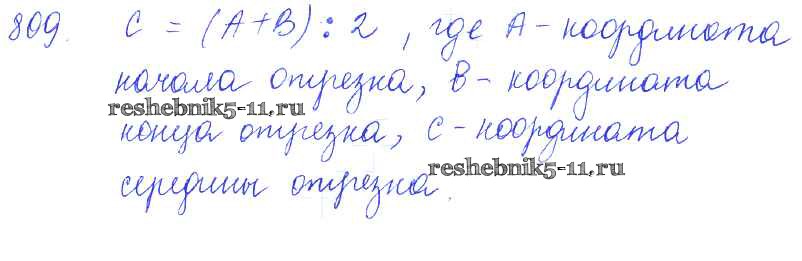 809. C = (A+B) : 2, где A - координата
начала отрезка, B - координата
reshebnik5-11.ru
конца отрезка, C - координата
reshebnik5-11.ru
середины отрезка.